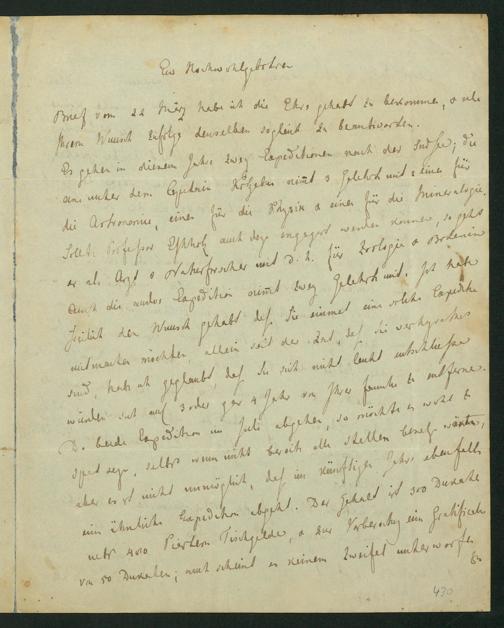 Ew Hochwohlgebohren
Brief vom 22 März habe ich die Ehre gehabt zu bekommen, &
Ihrem Wunsch zufolge denselben sogleich zu beantworten.
Es gehen in diesem Jahre zwey Expeditionen nach der Südsee; die
eine unter dem Capitain Kotzebue nimt 3 Gelehrte mit: einen für
die Astronomie, einen für die Physik & einen für die Mineralogie.
Sollte Professor Eschholz auch dazu engagirt werden können, so geht
er als Arzt & Naturforscher mit d. h. für Zoologie & Botanik
Auch die andere Expedition nimt zwey Gelehrte mit. Ich habe
freilich den Wunsch gehabt daß Sie einmal eine solche Expedition
mitmachen möchten, allein seit der Zeit, daß Sie verheyrathet
sind, habe ich geglaubt, daß Sie sich nicht leicht entschließen
würden sich auf 3 oder gar 4 Jahr von Ihrer Familie zu entfernen.
Da beide Expeditionen im Juli abgehen, so möchte es wohl zu
spät seyn, selbst wenn nicht bereits alle Stellen besetzt wären,
aber es ist nicht unmöglich, daß im künftigen Jahre ebenfalls
eine ähnliche Expedition abgeht. Der Gehalt ist 300 Dukaten
nebst 400 Tischgelder, & zur Vorbereitung ein Gratification
von 50 Dukaten; auch scheint es keinem Zweifel unterworfen
430